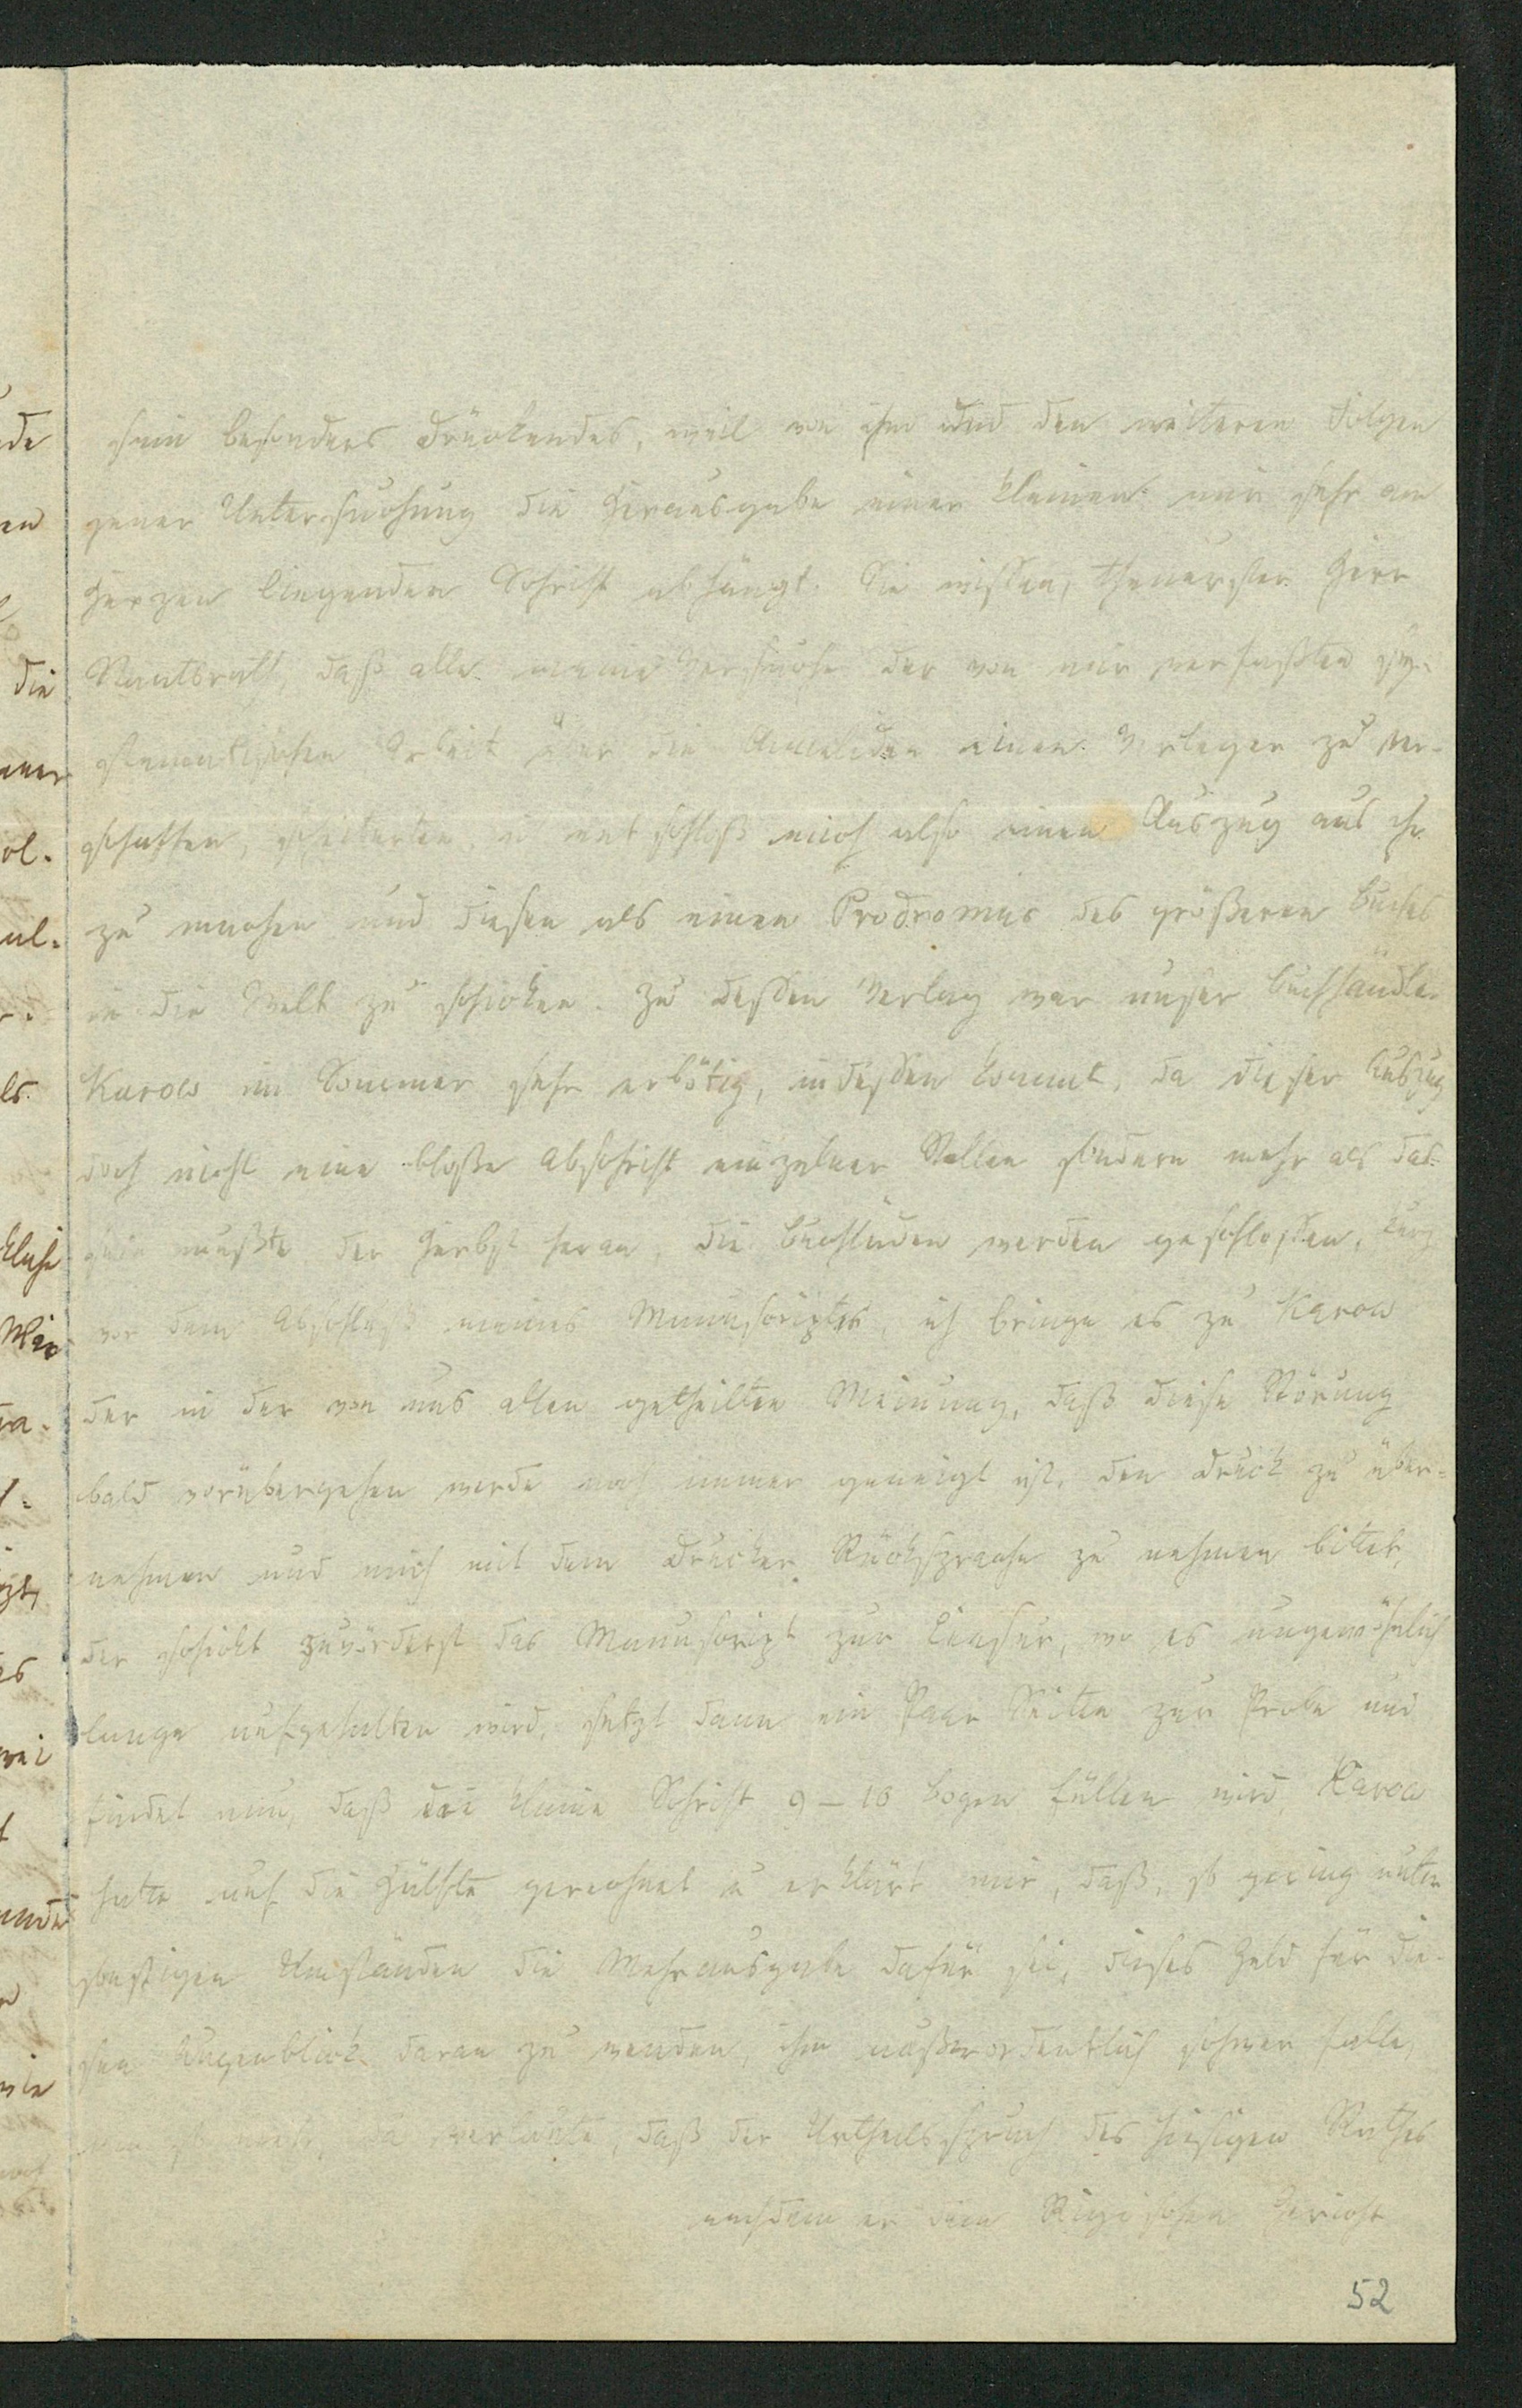 sein besonders drückendes, weil von ihm und den weiteren Folgen
jener Untersuchung die Herausgabe einer kleinen mir sehr am
Herzen liegenden Schrift abhängt. Sie wissen, theuerster Herr
Staatsrath, daß alle meine Versuche der von mir verfaßten sy-
stematischen Arbeit über die Anneliden einen Verleger zu ver-
schaffen, scheiterten, ich entschloß mich also einen Auszug aus ihr
zu machen und diesen als einen Prodromus des größeren Buches
in die Welt zu schicken. Zu dessen Verlag war unser Buchhändler
Karow im Sommer sehr erbötig, indessen kommt, da dieser Auszug
doch nicht eine bloße Abschrift einzelner Stellen sondern mehr als das
sein mußte der Herbst heran, die Buchläden werden geschlossen, kurz
vor dem Abschluß meines Manuscriptes, ich bringe es zu Karow
der in der von uns allen getheilten Meinung, daß diese Störung
bald vorübergehen werde noch immer geneigt ist, den Druck zu über-
nehmen und mich mit dem Drucker Rücksprache zu nehmen bittet,
der schickt zuvörderst das Manuscript zur Censur, wo es ungewöhnlich
lange aufgehalten wird, setzt dann ein Paar Seiten zur Probe und
findet nun, daß die kleine Schrift 9-10 Bogen füllen wird, Karow
hatte auf die Hälfte gerechnet u erklärt mir, daß, so gering unter
sonstigen Umständen die Mehrausgabe dafür sei, dieses Geld für die-
sen Augenblick daran zu wenden, ihm außerordentlich schwer falle,
um so mehr, da verlaute, daß der Urtheilsspruch des hiesigen Rathes
nachdem er dem Rigischen Gericht
52
de
en
die
ol.
ul.
ls.
ra.
es
wie